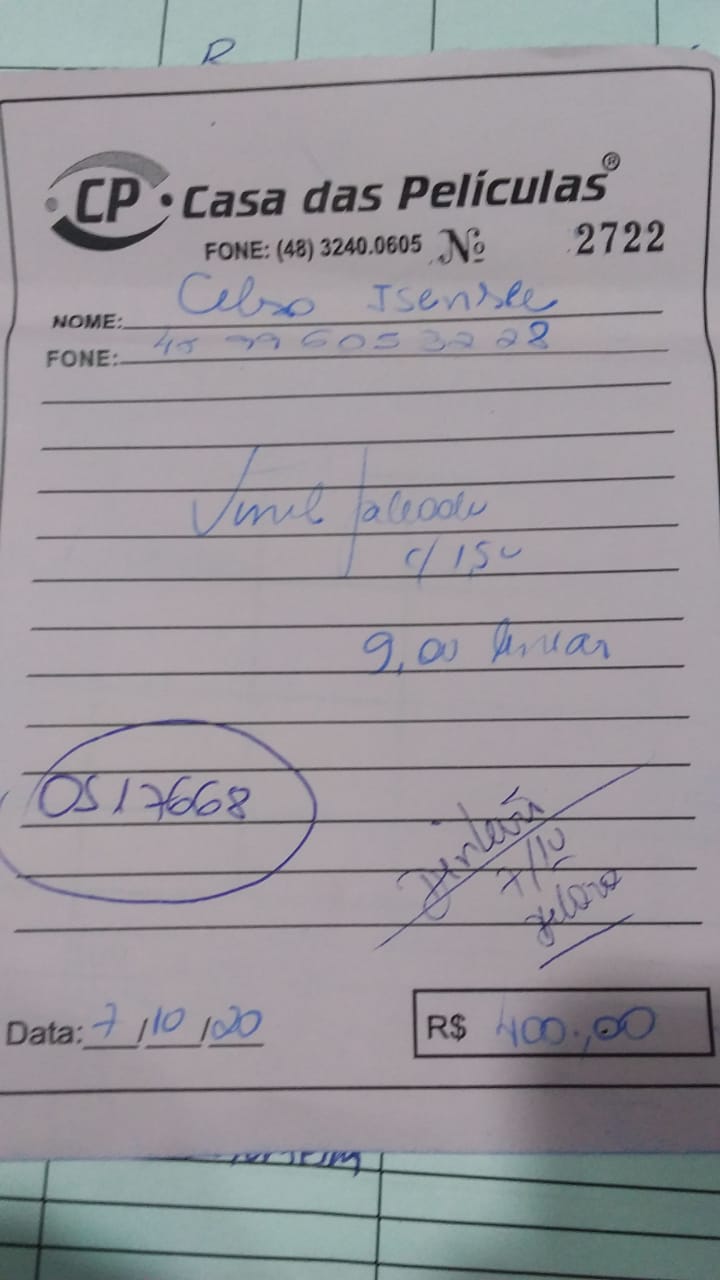 R
CP
Casa das Películas®
FONE: (48) 3240.0605 Nº 2722
NOME: Celso Isensee
FONE: 48 99 605 3228
Vinil Jateado
c/ 1,50
9,00 linear
OS 17668
7/10
Data: 7/10/20 R$ 400,00